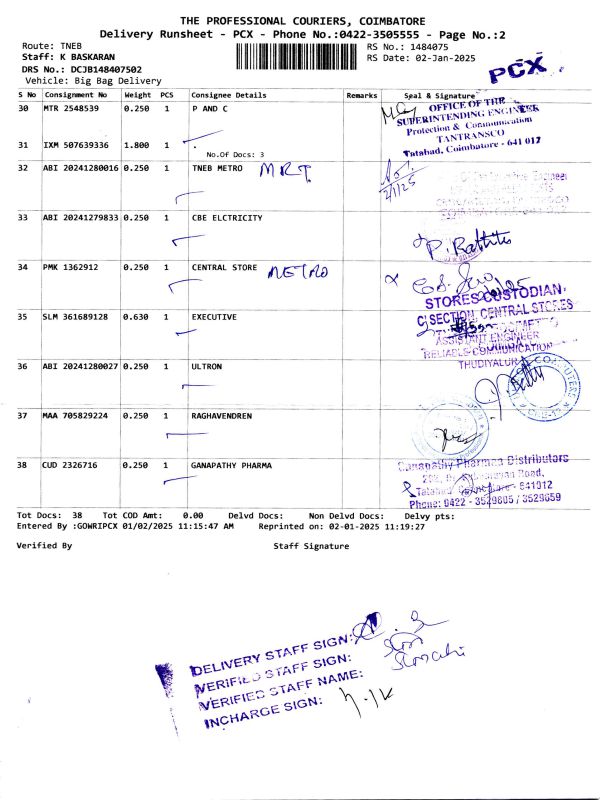 THE PROFESSIONAL COURIERS, COIMBATORE
Delivery Runsheet - PCX - Phone No.:0422-3505555 - Page No.:2
Route: TNEB
RS No.: 1484075
Staff: K BASKARAN
RS Date: 02-Jan-2025
DRS No.: DCJB148407502
Vehicle: Big Bag Delivery
PCX
S No Consignment No Weight PCS Consignee Details Remarks Seal & Signature
30 MTR 2548539 0.250 1 P AND C
OFFICE OF THE
SUPERINTENDING ENGINEER
Protection & Communication
TANTRANSCO
Tatabad, Coimbatore - 641 012
31 IXM 507639336 1.800 1 .
No.Of Docs: 3
32 ABI 20241280016 0.250 1 TNEB METRO MRT
2/1/25
33 ABI 20241279833 0.250 1 CBE ELCTRICITY
34 PMK 1362912 0.250 1 CENTRAL STORE METRO
STORES CUSTODIAN,
C SECTION, CENTRAL STORES
35 SLM 361689128 0.630 1 EXECUTIVE
ASSISTANT ENGINEER
RELIABLE COMMUNICATION
THUDIYALUR
36 ABI 20241280027 0.250 1 ULTRON
37 MAA 705829224 0.250 1 RAGHAVENDREN
38 CUD 2326716 0.250 1 GANAPATHY PHARMA
Ganapathy Pharma Distributors
Road,
Tatabad, Coimbatore - 641012
Phone: 0422 - 3529805 / 3529659
Tot Docs: 38 Tot COD Amt: 0.00 Delvd Docs: Non Delvd Docs: Delvy pts:
Entered By :GOWRIPCX 01/02/2025 11:15:47 AM Reprinted on: 02-01-2025 11:19:27
Verified By Staff Signature
DELIVERY STAFF SIGN:
VERIFIED STAFF SIGN:
VERIFIED STAFF NAME:
INCHARGE SIGN: